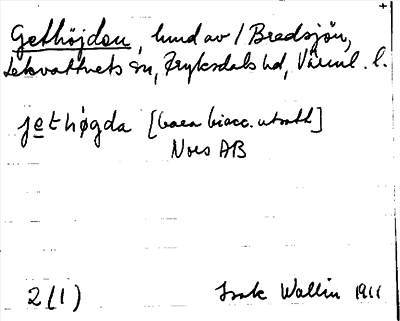 Gethöjden, lund av / Bredsjön,
Lekvattnets sn, Fryksdals hd, Värml. l.
jethøgda [bara biacc. utsatt]
Nors AB
2(1) Isak Wallin 1911